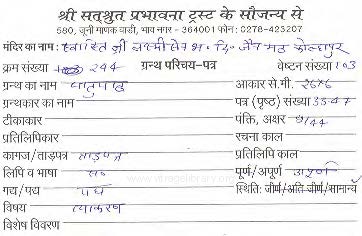 श्री सत्श्रुत प्रभावना ट्रस्ट के सौजन्य से
580, जूनी माणक वाडी, भाव नगर - 364001 फोन: 0278-423207
मंदिर का नाम : स्वास्ति श्री लक्ष्मीसेन भ. दि. जैन मठ कोल्हापुर
क्रम संख्या 244 ग्रन्थ परिचय-पत्र वेष्टन संख्या 103
ग्रन्थ का नाम धातुपाठ आकार से.मी. 26x6
ग्रन्थकार का नाम पत्र (पृष्ठ) संख्या 35-47
टीकाकार पंक्ति, अक्षर 9/44
प्रतिलिपिकार रचना काल
कागज/ताड़पत्र ताड़पत्र प्रतिलिपि काल
लिपि व भाषा सं० पूर्ण/अपूर्ण अपूर्ण
गद्य/पद्य पद्य स्थिति: जीर्ण/अति जीर्ण/सामान्य
विषय व्याकरण
विशेष विवरण